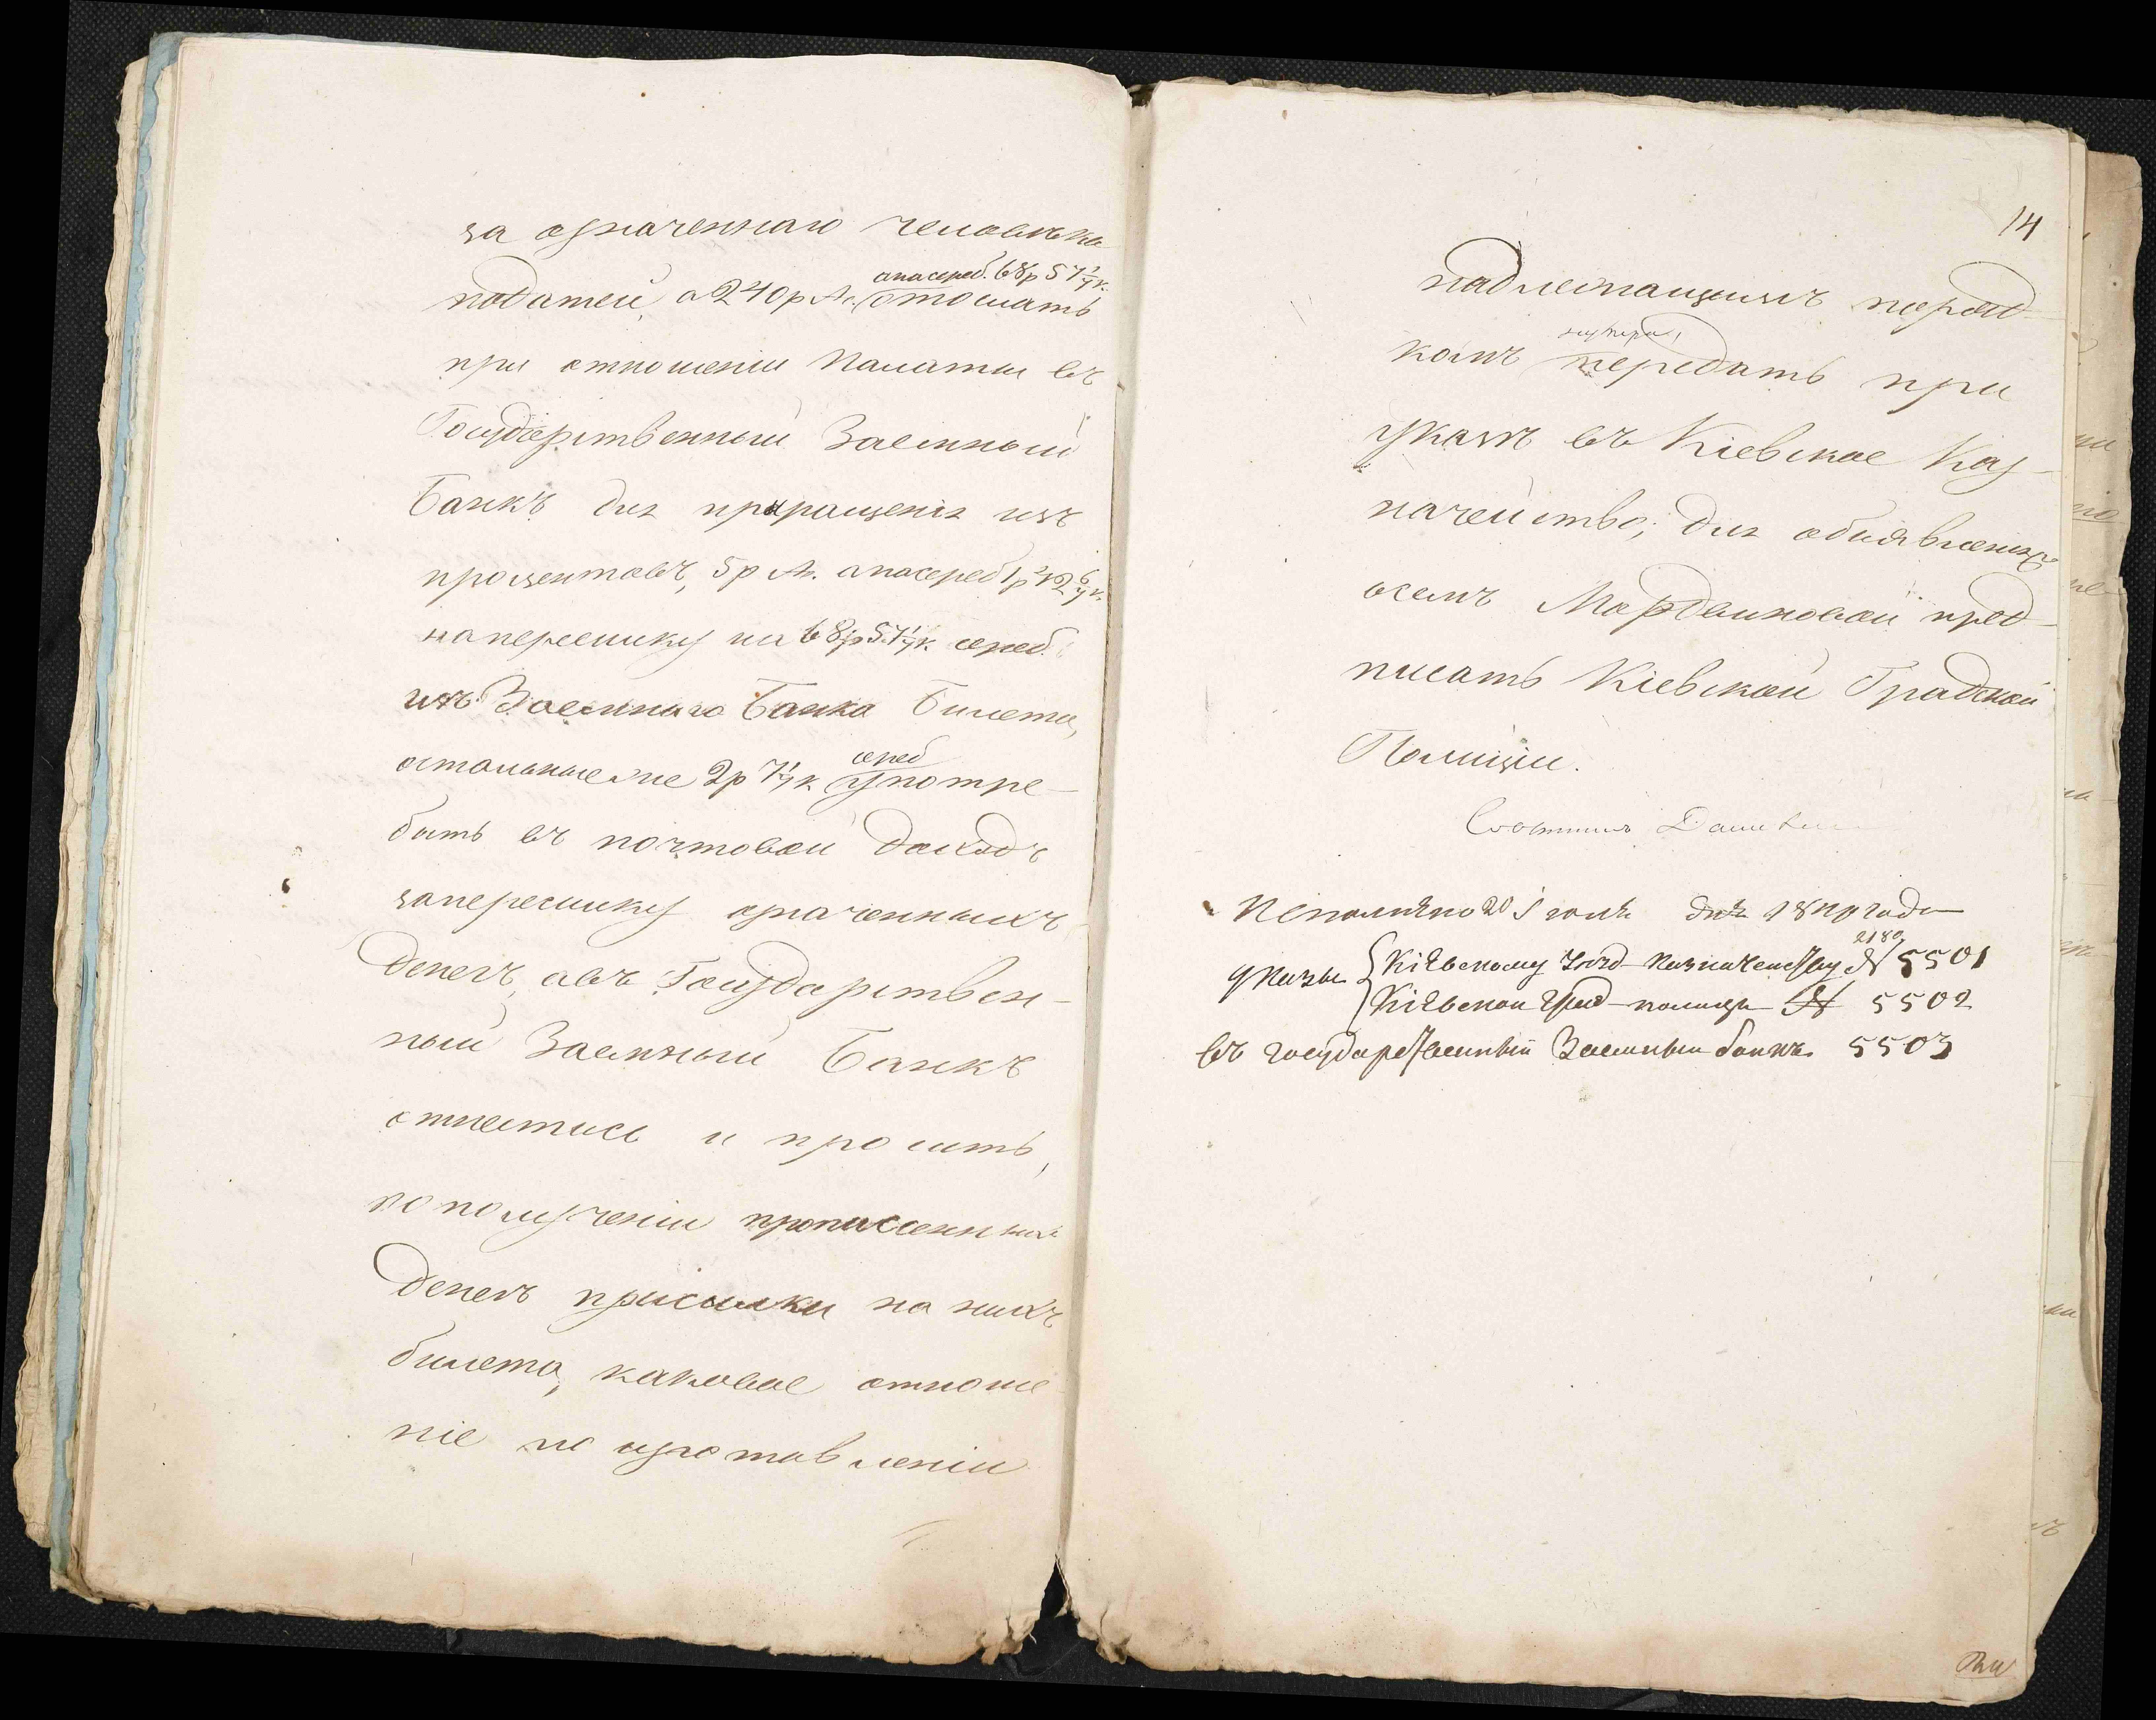 за означеннаго человѣка
податей, а 240 р. А. отослать
а на сереб. 68 р 57 1/7 к.
при отношеніи Палаты въ
Государственный Заемный
Банкъ для приращенія изъ
процентовъ, 5 р А. а на сереб 1 р 42 6/7 к.
на пересылку на 68 р 57 1/7 к. сереб.
изъ Заемнаго Банка Билета,
остальные же 2 р 7 1/7 к употре-
сереб
бить въ почтовой доходъ
за пересылку означенныхъ
денегъ, а въ Государствен-
ный Заемный Банкъ
отнестись и просить,
по полученіи прописанныхъ
денегъ присылки на нихъ
билета, каковое отноше
ніе по изготовленіи
14
надлежащимъ поряд-
комъ передать при
указѣ въ Кіевское Каз-
начейство; для объявленія
о семъ Мордвиновой пред-
писать Кіевской Градской
Полиціи.
Исполнено 20 Іюля дня 1840 года
2180
указы Кіевскому Уѣзд Казначейству № 5501
Кіевской Град полиціи № 5502
въ государственный Заемный банкъ 5503